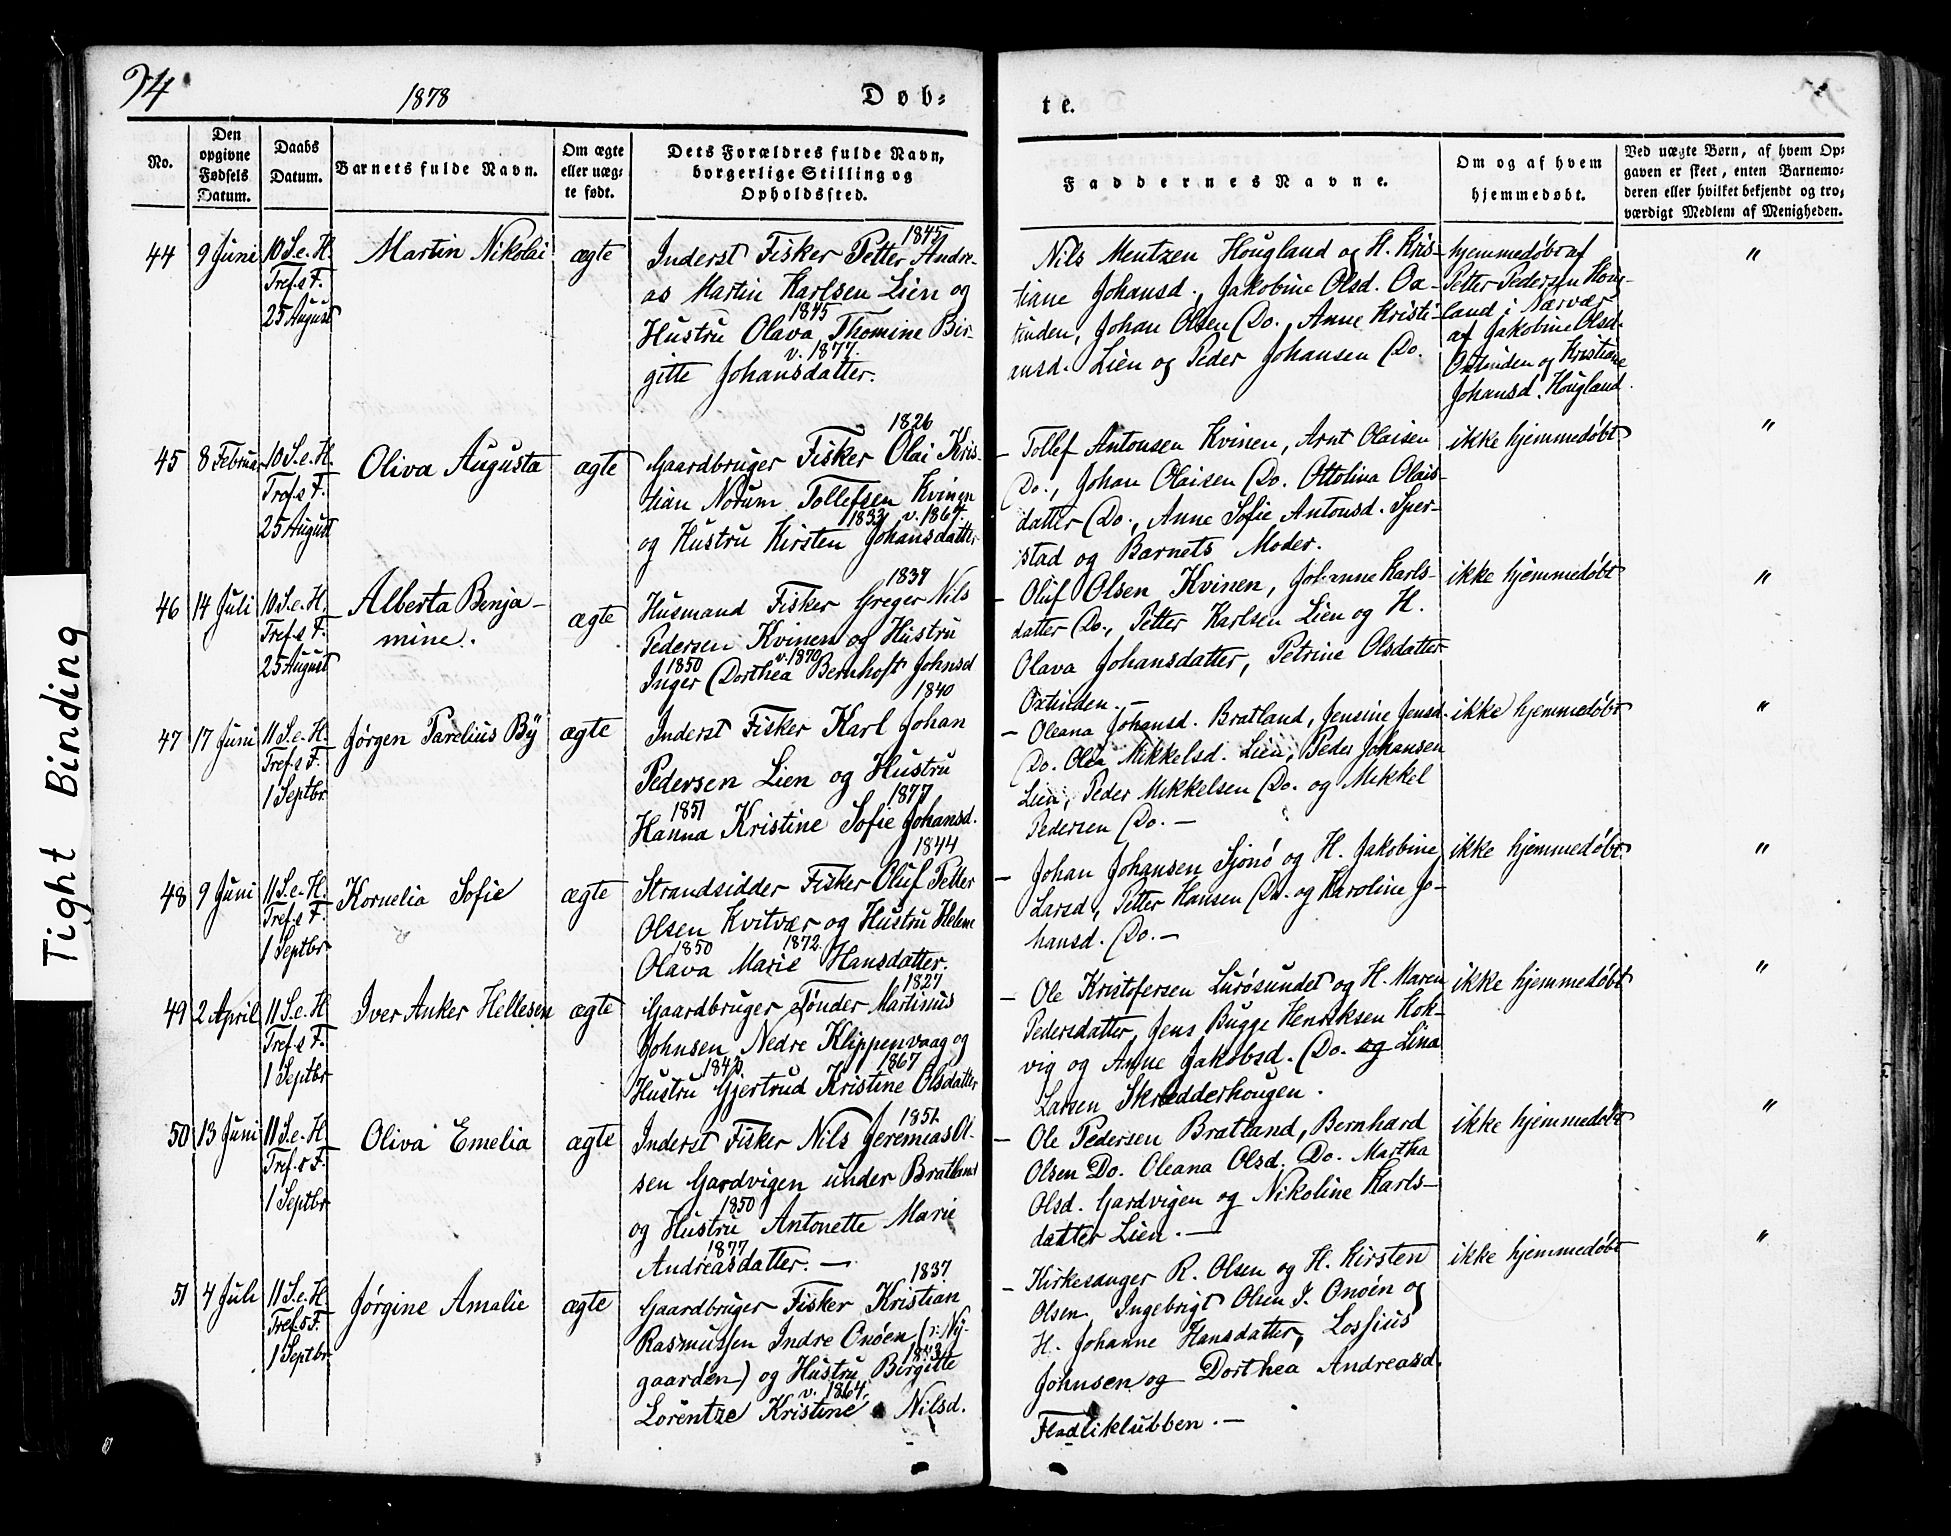 74
1878
Døb=
te.
No.
Den opgivne Fødsels Datum.
Daabs Datum.
Barnets fulde Navn.
Om ægte eller uæg=te født.
Dets Forældres fulde Navn, borgerlige Stilling og Opholdssted.
Faddernes Navne.
Om og af hvem hjemmedøbt.
Ved uægte Børn, af hvem Op=gaven er skeet, enten Barnemo=deren eller hvilket bekjendt og tro=værdigt Medlem af Menigheden.
Tight Binding
44
9 Juni
10 S. e. H.
Tref. s F.
25 August
Martin Nikolai
ægte
1845
Inderst Fisker Petter Andre-
as Martin Karlsen Lien og
1845
Hustru Olava Thomine Bir-
v. 1877.
gitte Johansdatter.
Nils Mentzen Hougland og H. Kris-
tiane Johansd., Jakobine Olsd. Ox-
tinden, Johan Olsen Do., Anne Kristi-
ansd. Lien og Peder Johansen Do.
hjemmedøbt af
Petter Pedersen Houg-
land i Nærvær
af Jakobine Olsd.
Oxtinden og Kristiane
Johansd. Hougland.
"
45
8 Februar
10 S. e. H.
Tref. s F.
25 August
Oliva Augusta
ægte
1826
Gaardbruger Fisker Olai Kris-
tian Norum Tollefsen Kvinen
1833 v. 1867.
og Hustru Kirsten Johansdatter
- Tollef Antonsen Kvinen, Arnt Olaisen
Do., Johan Olaisen Do. Ottolina Olais-
datter Do., Anne Sofie Antonsd. Sper-
stad og Barnets Moder.
ikke hjemmedøbt
"
46
14 Juli
10 S. e. H.
Tref. s F.
25 August
Alberta Benja-
mine.
ægte
1837
Husmand Fisker Greger Nils
Pedersen Kvinen og Hustru
1850 v. 1870
Inger Dorthea Bernhoft Johnsd
- Oluf Olsen Kvinen, Johanne Karls-
datter Do., Petter Karlsen Lien og H.
Olava Johansdatter, Petrine Olsdatter
Oxtinden. -
ikke hjemmedøbt
"
47
17 Juni
11 S. e. H.
Tref. s F.
1 Septbr
Jørgen Parelius Bÿ
ægte
1840
Inderst Fisker Karl Johan
Pedersen Lien og Hustru
1851 1877
Hanna Kristine Sofie Johansd.
- Oleana Johansd. Bratland, Jensine Jensd.
Do. Olea Mikkelsd. Lien, Peder Johansen
Lien, Peder Mikkelsen Do. og Mikkel
Pedersen Do. -
ikke hjemmedøbt
"
48
9 Juni
11 S. e. H.
Tref. s F.
1 Septbr
Kornelia Sofie
ægte
1844
Strandsidder Fisker Oluf Petter
Olsen Kvitvær og Hustru Helene
1850 1872.
Olava Marie Hansdatter.
- Johan Johansen Sjonø og H. Jakobine
Larsd, Petter Hansen Do. og Karoline Jo-
hansd. Do. -
ikke hjemmedøbt.
"
49
2 April
11 S. e. H
Tref. s F.
1 Septbr
Iver Anker Hellesen
ægte
1827
Gaardbruger Tønder Martinus
Johnsen Nedre Klippenvaag og
1843 1867
Hustru Gjertrud Kristine Olsdatter
- Ole Kristofersen Lurøsundet og H. Maren
Pedersdatter, Jens Bugge Henriksen Kok-
vig og Anne Jakobsd. Do. og Lina
Larsen Skrædderhougen.
ikke hjemmedøbt
"
50
13 Juni
11 S. e. H
Tref. s F.
1 Septbr
Oliva Emelia
ægte
1851
Inderst Fisker Nils Jeremias Ol-
sen Gardvigen under Bratland
1850
og Hustru Antonette Marie
1877
Andreasdatter. -
- Ole Pedersen Bratland, Bernhard
Olsen Do. Oleana Olsd. Do. Martha
Olsd. Gardvigen og Nikoline Karls-
datter Lien. -
ikke hjemmedøbt
"
51
4 Juli
11 S. e. H
Tref. s F.
1 Septbr
Jørgine Amalie
ægte
1837
Gaardbruger Fisker Kristian
Rasmussen Indre Onøen (: Nÿ-
1843
gaarden) og Hustru Birgitte
v. 1864.
Lorentze Kristine Nilsd.
- Kirkesanger R. Olsen og H. Kirsten
Olsen, Ingebrigt Olsen I. Onøen og
H. Johanne Hansdatter, Lossius
Johnsen og Dorthea Andreasd.
Fladliklubben. -
ikke hjemmedøbt
"